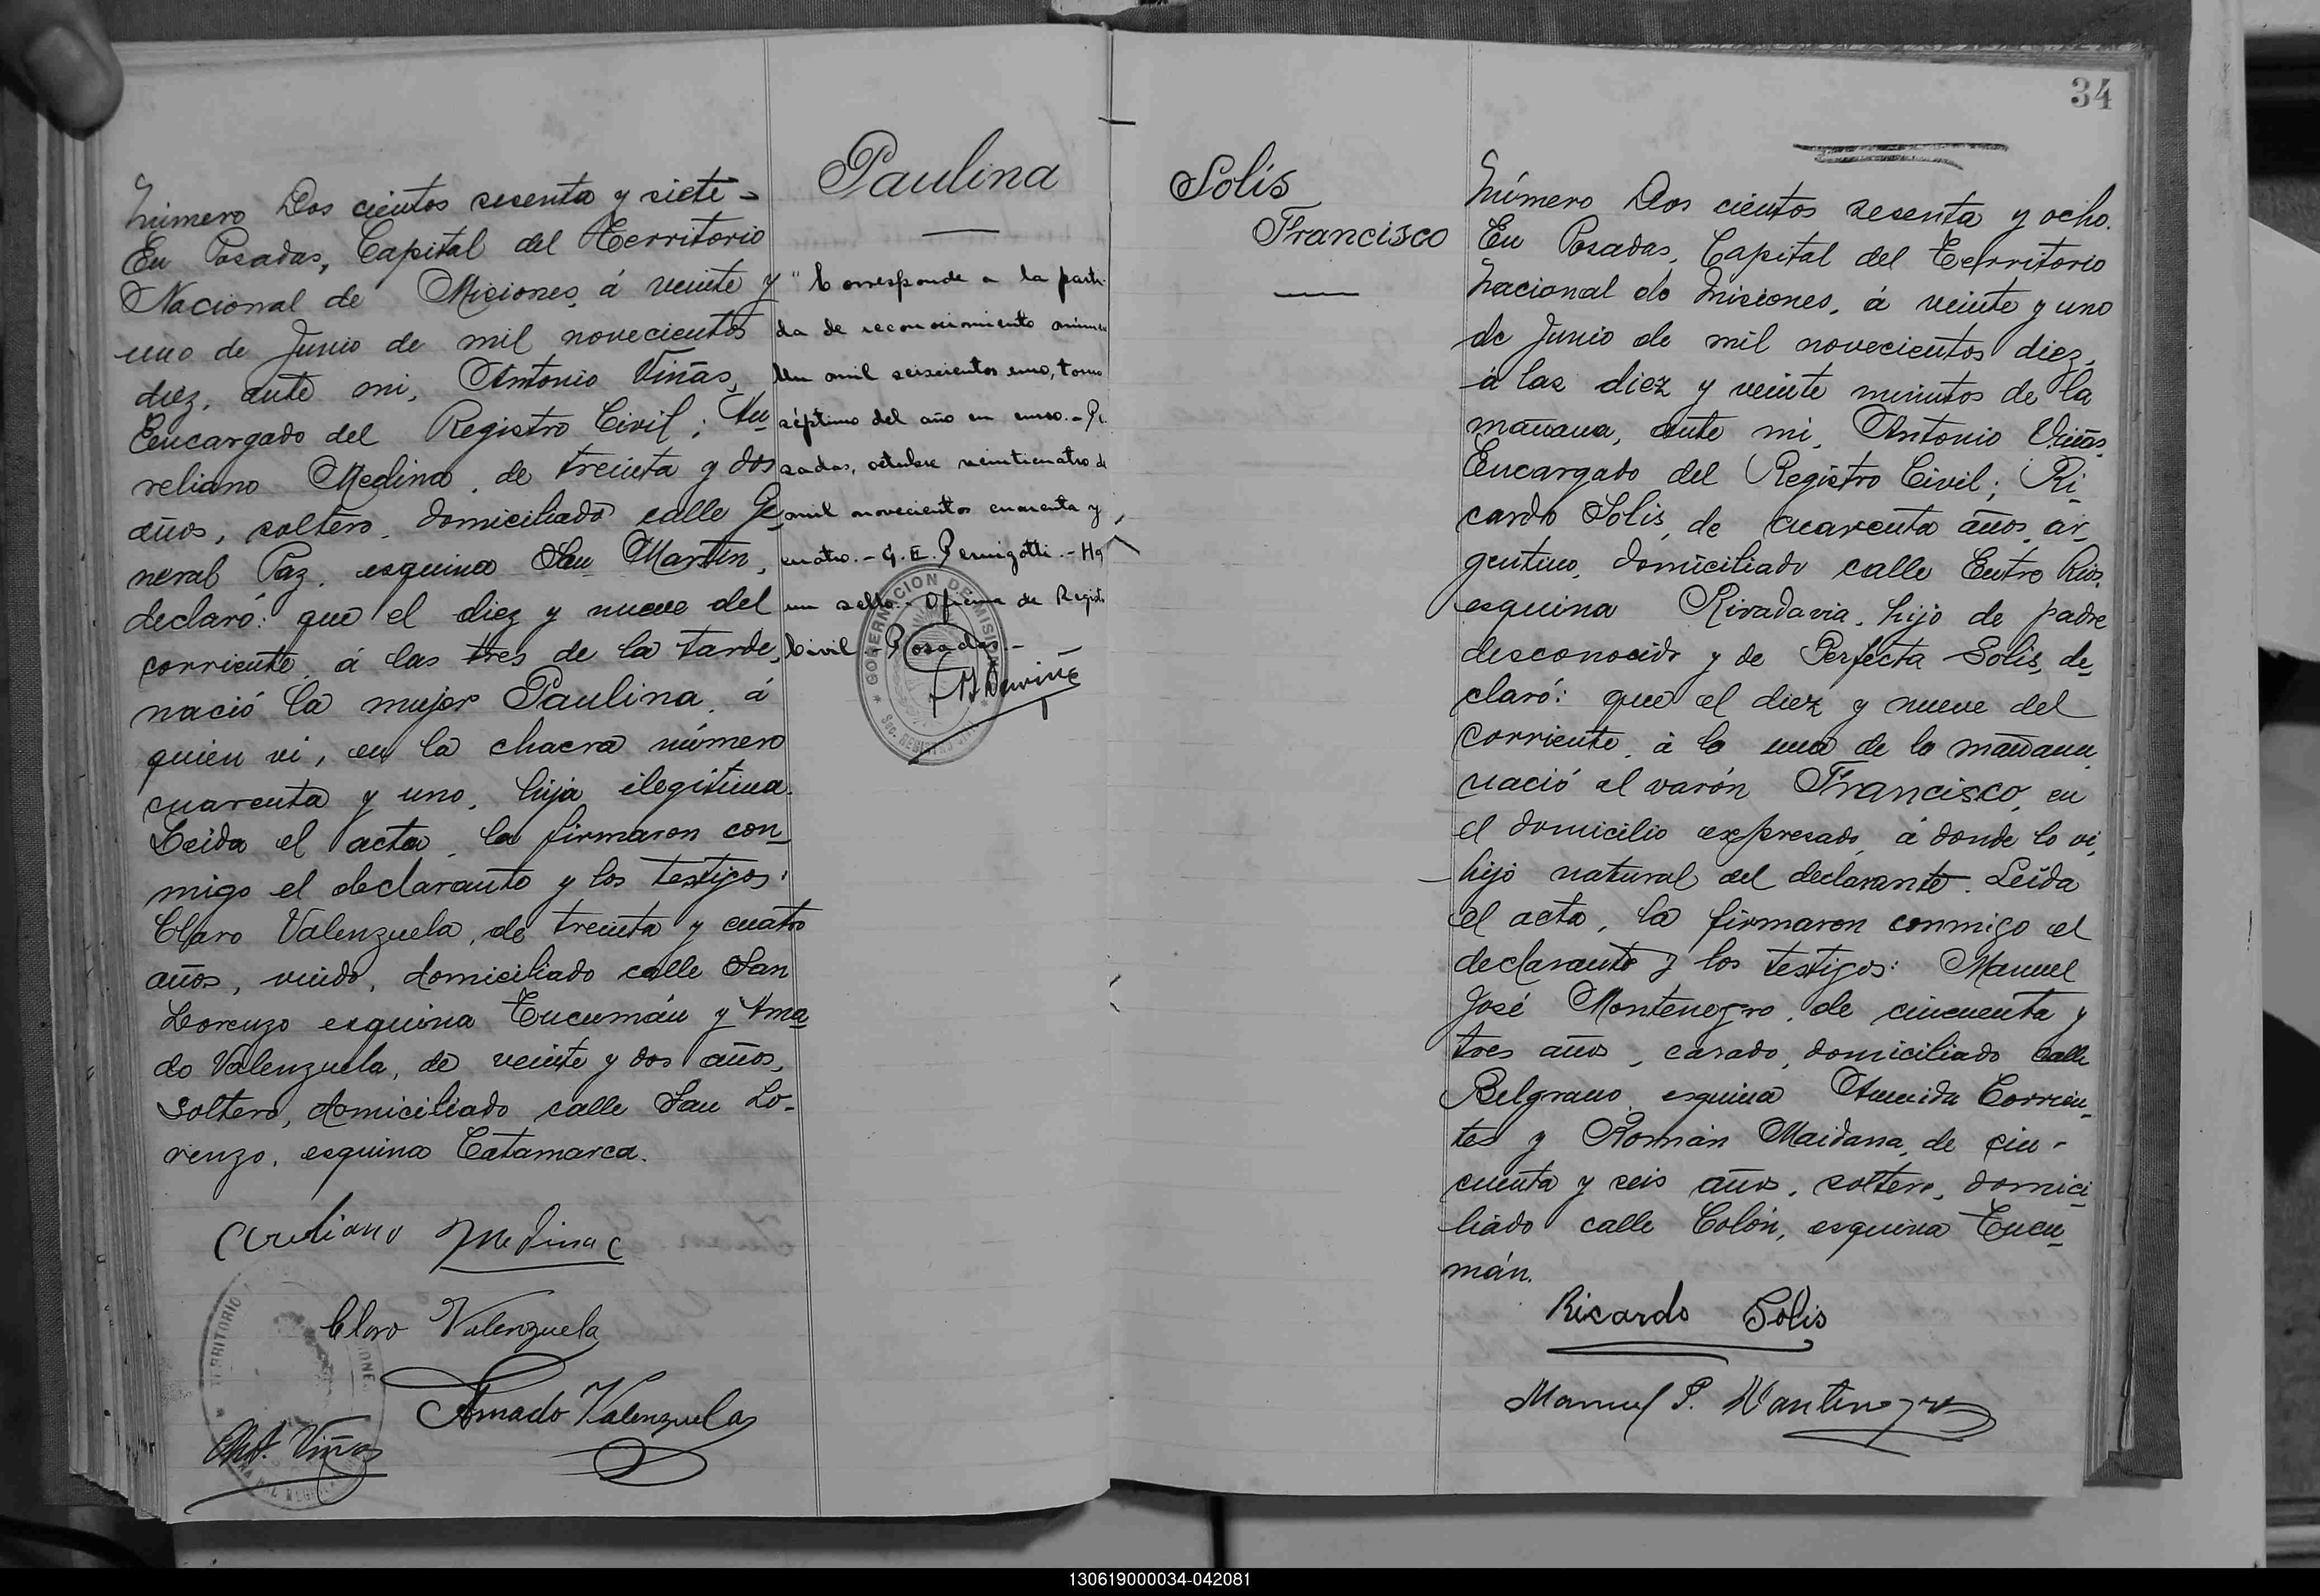 Número Dos cientos sesenta y siete -
En Posadas, Capital del Territorio
Nacional de Misiones, á veinte y
uno de Junio de mil novecientos
diez, ante mi, Antonio Viñas,
Encargado del Registro Civil; Au
reliano Medina, de treinta y dos
años, soltero, domiciliado calle Ge
neral Paz, esquina San Martin,
declaró: que el diez y nueve del
corriente, á las tres de la tarde,
nació la mujer Paulina, á
quien vi, en la chacra número
cuarenta y uno, hija ilegítima.
Leida el acta, la firmaron con
migo el declarante y los testigos:
Claro Valenzuela, de treinta y cuatro
años, viudo, domiciliado calle San
Lorenzo esquina Tucumán y Ama
do Valenzuela, de veinte y dos años,
soltero, domiciliado calle San Lo-
renzo, esquina Catamarca.
Aureliano Medina
Claro Valenzuela
Amado Valenzuela
Ant. Viñas
TERRITORIO
Paulina
"Corresponde a la parti-
da de reconocimiento número
Un mil seiscientos uno, tomo
séptimo del año en curso. - Po
sadas, octubre veinticuatro de
mil novecientos cuarenta y
cuatro. - G. E. Pernigotti. - Hay
un sello - Oficina de Registro
Civil - Posadas. -
GOBERNACION DE MISIONES
34
Solís
Francisco
Número Dos cientos sesenta y ocho.
En Posadas, Capital del Territorio
Nacional de Misiones, á veinte y uno
de Junio de mil novecientos diez,
á las diez y veinte minutos de la
mañana, ante mi, Antonio Viñas,
Encargado del Registro Civil; Ri
cardo Solis, de cuarenta años, ar
gentino, domiciliado calle Entre Rios,
esquina Rivadavia, hijo de padre
desconocido y de Perfecta Solis, de
claró: que el diez y nueve del
corriente, á la una de la mañana,
nació el varón Francisco, en
el domicilio expresado, á donde lo vi,
hijo natural del declarante. Leida
el acta, la firmaron conmigo el
declarante y los testigos: Manuel
José Montenegro, de cincuenta y
tres años, casado, domiciliado calle
Belgrano, esquina Avenida Corrien
tes y Román Maidana, de cin-
cuenta y seis años, soltero, domici
liado calle Colón, esquina Tucu
mán.
Ricardo Solis
Manuel J. Montenegro
130619000034-042081